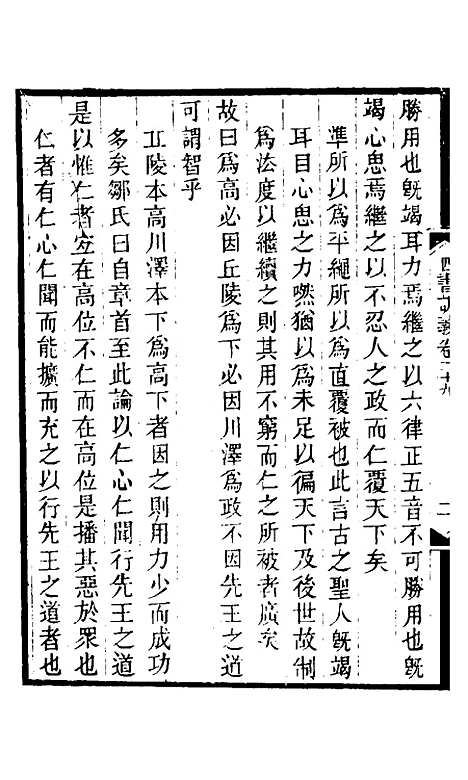 勝用也旣竭耳力焉繼之以六律正五音不可勝用也旣
竭心思焉繼之以不忍人之政而仁覆天下矣
準所以為平繩所以為直覆被也此言古之聖人旣竭
耳目心思之力然猶以為未足以徧天下及後世故制
為法度以繼續之則其用不窮而仁之所被者廣矣
故曰為高必因丘陵為下必因川澤為政不因先王之道
可謂智乎
丘陵本高川澤本下為高下者因之則用力少而成功
多矣鄒氏曰自章首至此論以仁心仁聞行先王之道
是以惟仁者宜在高位不仁而在高位是播其惡於眾也
仁者有仁心仁聞而能擴而充之以行先王之道者也
四書 義卷二十九
二